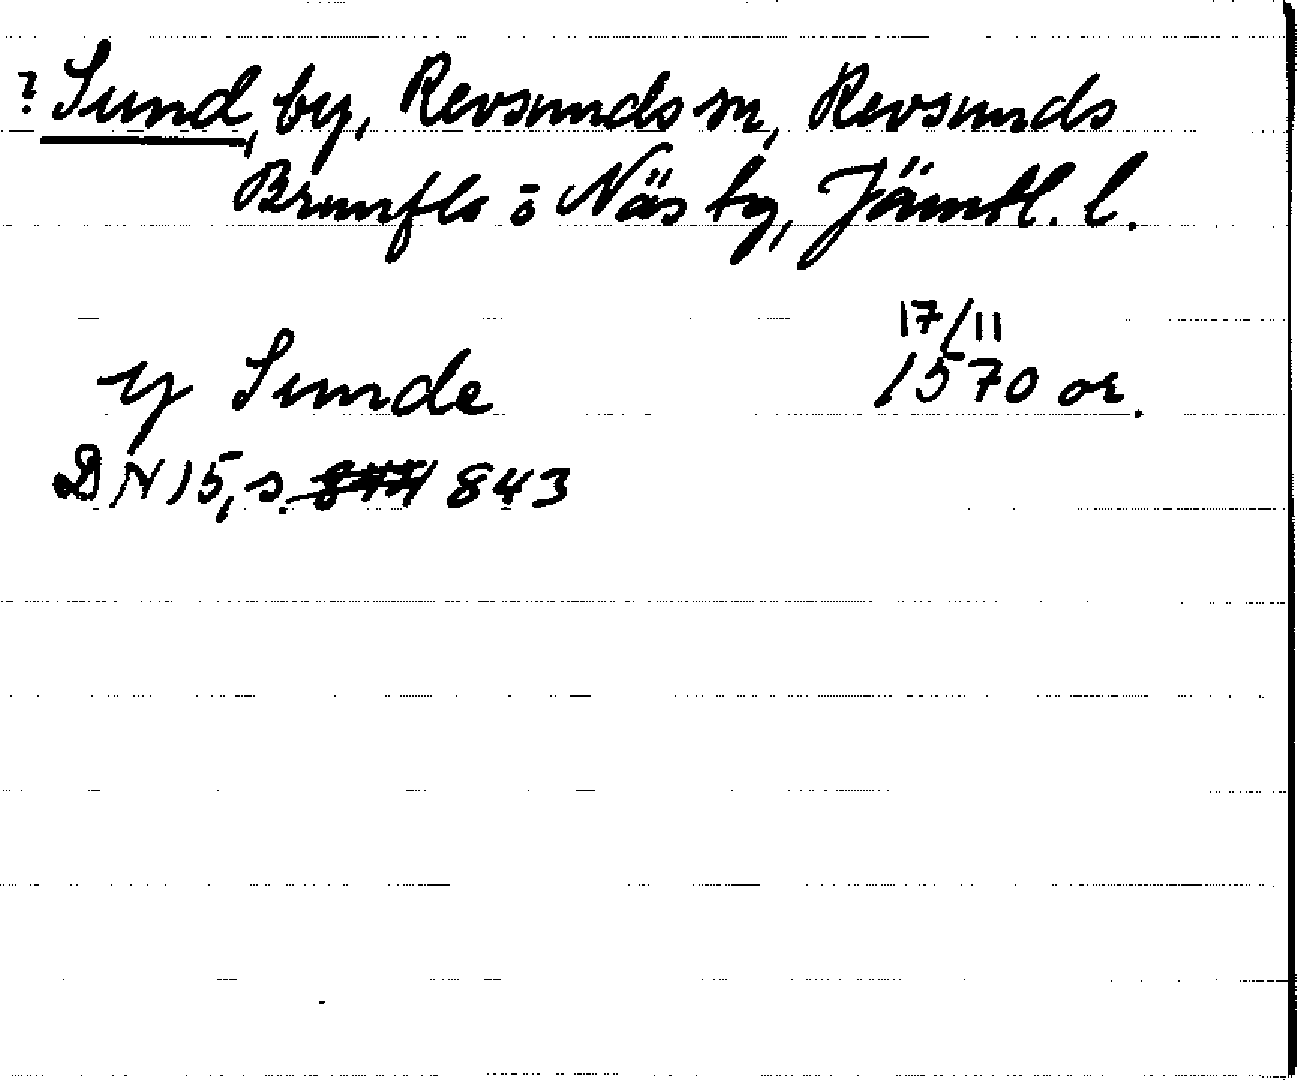 ? Sund, by, Revsunds sn, Revsunds
Brunflo o Näs tg, Jämtl. l.
17/11
y Sunde 1570 or.
DN 15, s. 843